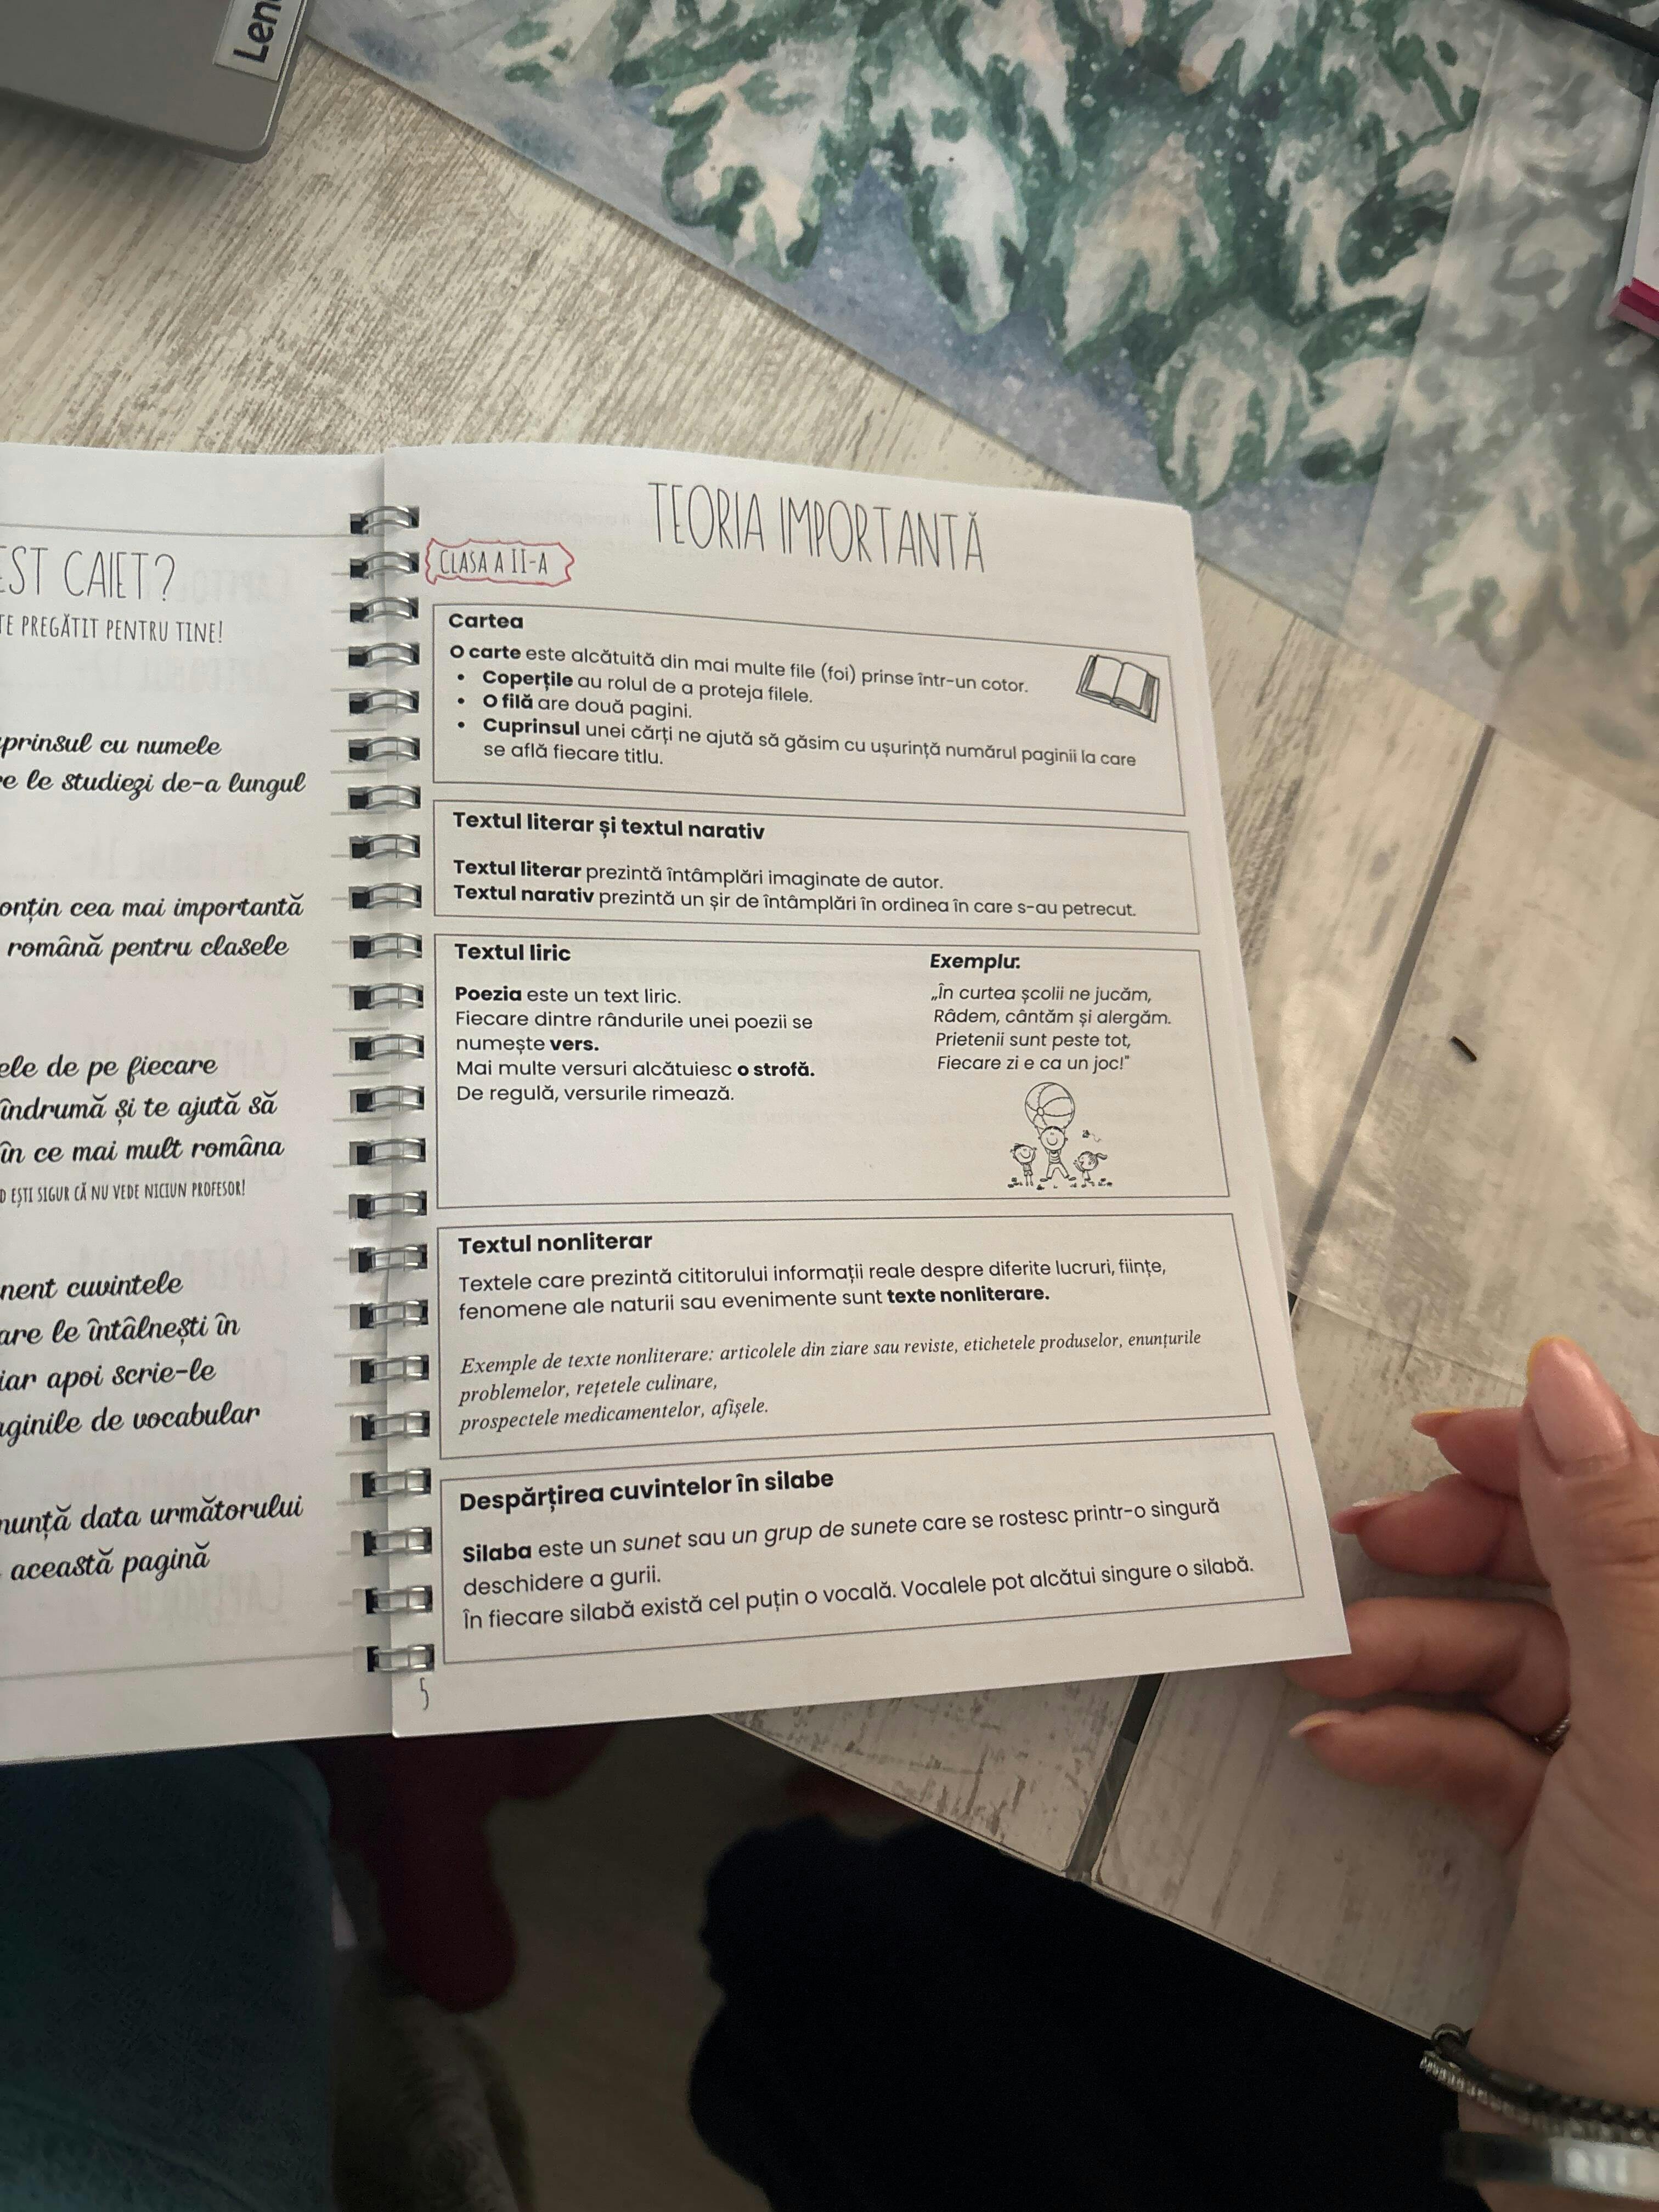 Len
EST CAIET?
TE PREGĂTIT PENTRU TINE!
cuprinsul cu numele
le studiezi de-a lungul
conțin cea mai importantă
română pentru clasele
de pe fiecare
îndrumă și te ajută să
în ce mai mult româna
EȘTI SIGUR CĂ NU VEDE NICIUN PROFESOR!
cuvintele
care le întâlnești în
iar apoi scrie-le
paginile de vocabular
anunță data următorului
această pagină
TEORIA IMPORTANTĂ
CLASA A II-A
Cartea
O carte este alcătuită din mai multe file (foi) prinse într-un cotor.
• Coperțile au rolul de a proteja filele.
• O filă are două pagini.
• Cuprinsul unei cărți ne ajută să găsim cu ușurință numărul paginii la care
se află fiecare titlu.
Textul literar și textul narativ
Textul literar prezintă întâmplări imaginate de autor.
Textul narativ prezintă un șir de întâmplări în ordinea în care s-au petrecut.
Textul liric
Poezia este un text liric.
Fiecare dintre rândurile unei poezii se
numește vers.
Mai multe versuri alcătuiesc o strofă.
De regulă, versurile rimează.
Exemplu:
„În curtea școlii ne jucăm,
Râdem, cântăm și alergăm.
Prietenii sunt peste tot,
Fiecare zi e ca un joc!"
Textul nonliterar
Textele care prezintă cititorului informații reale despre diferite lucruri, ființe,
fenomene ale naturii sau evenimente sunt texte nonliterare.
Exemple de texte nonliterare: articolele din ziare sau reviste, etichetele produselor, enunțurile
problemelor, rețetele culinare,
prospectele medicamentelor, afișele.
Despărțirea cuvintelor în silabe
Silaba este un sunet sau un grup de sunete care se rostesc printr-o singură
deschidere a gurii.
În fiecare silabă există cel puțin o vocală. Vocalele pot alcătui singure o silabă.
5